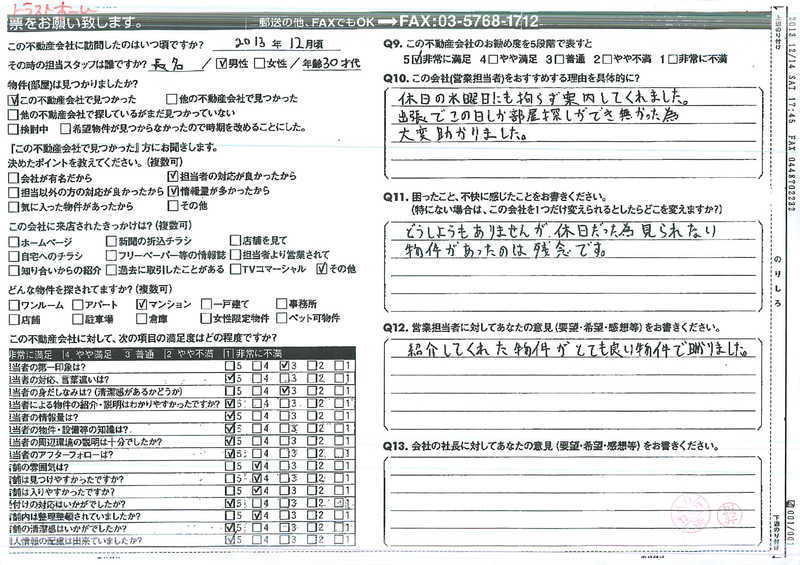 トラストホーム
票をお願い致します。
郵送の他、FAXでもOK ➞FAX:03-5768-1712
この不動産会社に訪問したのはいつ頃ですか? 2013年12月頃
その時の担当スタッフは誰ですか? 長名 / ☑男性 □女性 / 年齢30才代
物件(部屋)は見つかりましたか?
☑この不動産会社で見つかった □他の不動産会社で見つかった
□他の不動産会社で探しているがまだ見つかっていない
□検討中 □希望物件が見つからなかったので時期を改めることにした。
『この不動産会社で見つかった』方にお聞きします。
決めたポイントを教えてください。(複数可)
□会社が有名だから ☑担当者の対応が良かったから
□担当以外の方の対応が良かったから ☑情報量が多かったから
□気に入った物件があったから □その他
この会社に来店されたきっかけは?(複数可)
□ホームページ □新聞の折込チラシ □店舗を見て
□自宅へのチラシ □フリーペーパー等の情報誌 □担当者より営業されて
□知り合いからの紹介 □過去に取引したことがある □TVコマーシャル ☑その他
どんな物件を探されてますか?(複数可)
□ワンルーム □アパート ☑マンション □一戸建て □事務所
□店舗 □駐車場 □倉庫 □女性限定物件 □ペット可物件
この不動産会社に対して、次の項目の満足度はどの程度ですか?
非常に満足 4 やや満足 3 普通 2 やや不満 1 非常に不満
当者の第一印象は? □5 □4 ☑3 □2 □1
当者の対応、言葉遣いは? ☑5 □4 □3 □2 □1
当者の身だしなみは?(清潔感があるかどうか) □5 □4 ☑3 □2 □1
当者による物件の紹介・説明はわかりやすかったですか? ☑5 □4 □3 □2 □1
当者の情報量は? ☑5 □4 □3 □2 □1
当者の物件・設備等の知識は? ☑5 □4 □3 □2 □1
当者の周辺環境の説明は十分でしたか? ☑5 □4 □3 □2 □1
当者のアフターフォローは? ☑5 □4 □3 □2 □1
舗の雰囲気は? □5 ☑4 □3 □2 □1
舗は見つけやすかったですか? □5 ☑4 □3 □2 □1
舗は入りやすかったですか? □5 ☑4 □3 □2 □1
付けの対応はいかがでしたか? ☑5 □4 □3 □2 □1
舗内は整理整頓されていましたか? □5 ☑4 □3 □2 □1
舗の清潔感はいかがでしたか? ☑5 □4 □3 □2 □1
人情報の配慮は出来ていましたか? ☑5 □4 □3 □2 □1
Q9. この不動産会社のお勧め度を5段階で表すと
5☑非常に満足 4□やや満足 3□普通 2□やや不満 1□非常に不満
Q10. この会社(営業担当者)をおすすめする理由を具体的に?
休日の水曜日にも拘らず案内してくれました。
出張でこの日しか部屋探しができ無かった為
大変助かりました。
Q11. 困ったこと、不快に感じたことをお書きください。
(特にない場合は、この会社を1つだけ変えられるとしたらどこを変えますか?)
どうしようもありませんが、休日だった為見られない
物件があったのは残念です。
Q12. 営業担当者に対してあなたの意見(要望・希望・感想等)をお書きください。
紹介してくれた物件がとても良い物件で助りました。
Q13. 会社の社長に対してあなたの意見(要望・希望・感想等)をお書きください。
2013 12/14 SAT 17:45 FAX 0448702232
のりしろ
001/001